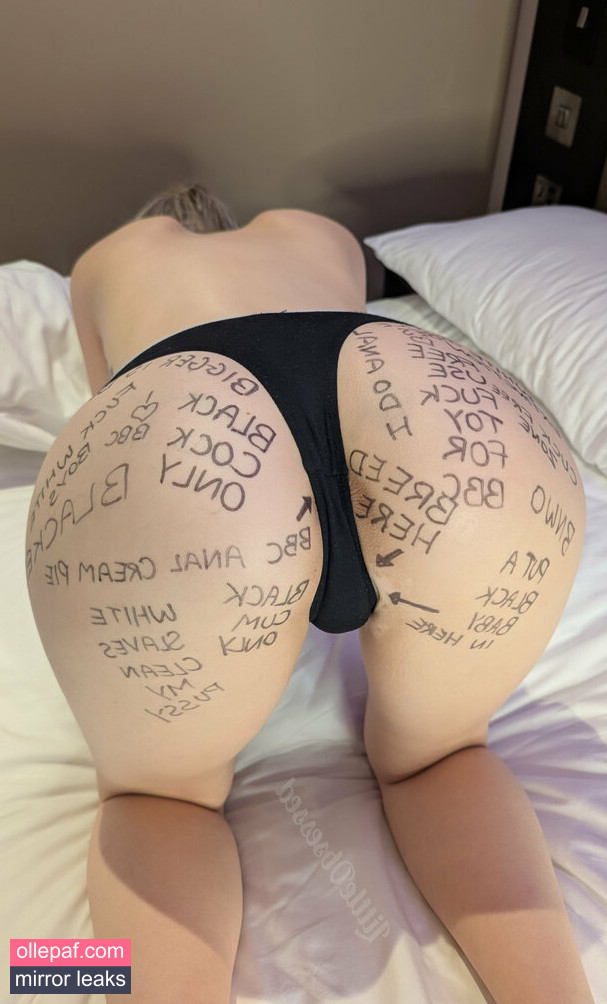 BIGGER
BLACK
COCK
ONLY
I ♡
BBC
FUCK WHITE
BOYS
BLACKED
BBC ANAL CREAM PIE
BLACK
CUM
ONLY
WHITE
SLAVES
CLEAN
MY
PUSSY
I DO ANAL
FREE
USE
FUCK
TOY
FOR
BBC
BREED
HERE
BNWO
PUT A
BLACK
BABY
IN HERE
ljittleObsessed
ollepaf.com
mirror leaks